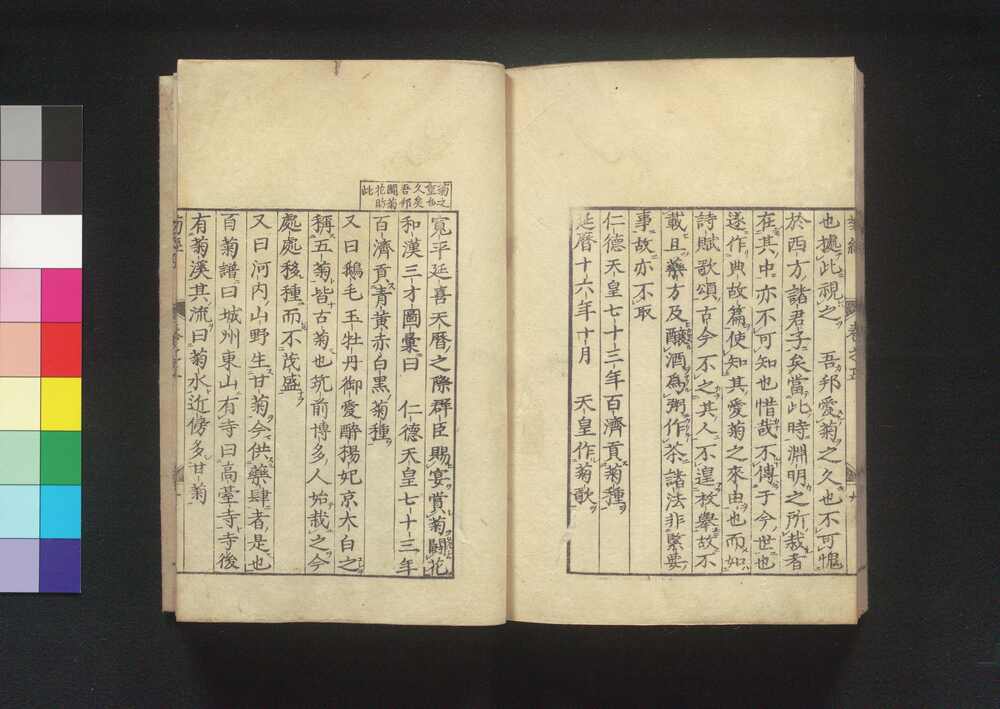 也據此視之 吾邦愛菊之久也不可愧
於西方諸君子矣當此時淵明之所栽者
在其中亦不可知也惜哉不傳于今世也
遂作典故篇使知其愛菊之來由也而如
詩賦歌頌古今不乏其人不遑枚舉故不
載且藥方及釀酒為粥作茶諸法非緊要
事故亦不取
仁德天皇七十三年百濟貢菊種
延曆十六年十月 天皇作菊歌
菊之
賞也
久矣
吾邦
鬭菊
花昉
此
寬平延喜天曆之際群臣賜宴賞菊鬭花
和漢三才圖彙曰 仁德天皇七十三年
百濟貢青黃赤白黑菊種
又曰鵝毛玉牡丹御愛醉楊妃京大白之
稱五菊皆古菊也筑前博多人始栽之今
處處移種而不茂盛
又曰河內山野生甘菊今供藥肆者是也
百菊譜曰城州東山有寺曰高臺寺寺後
有菊溪其流曰菊水近傍多甘菊